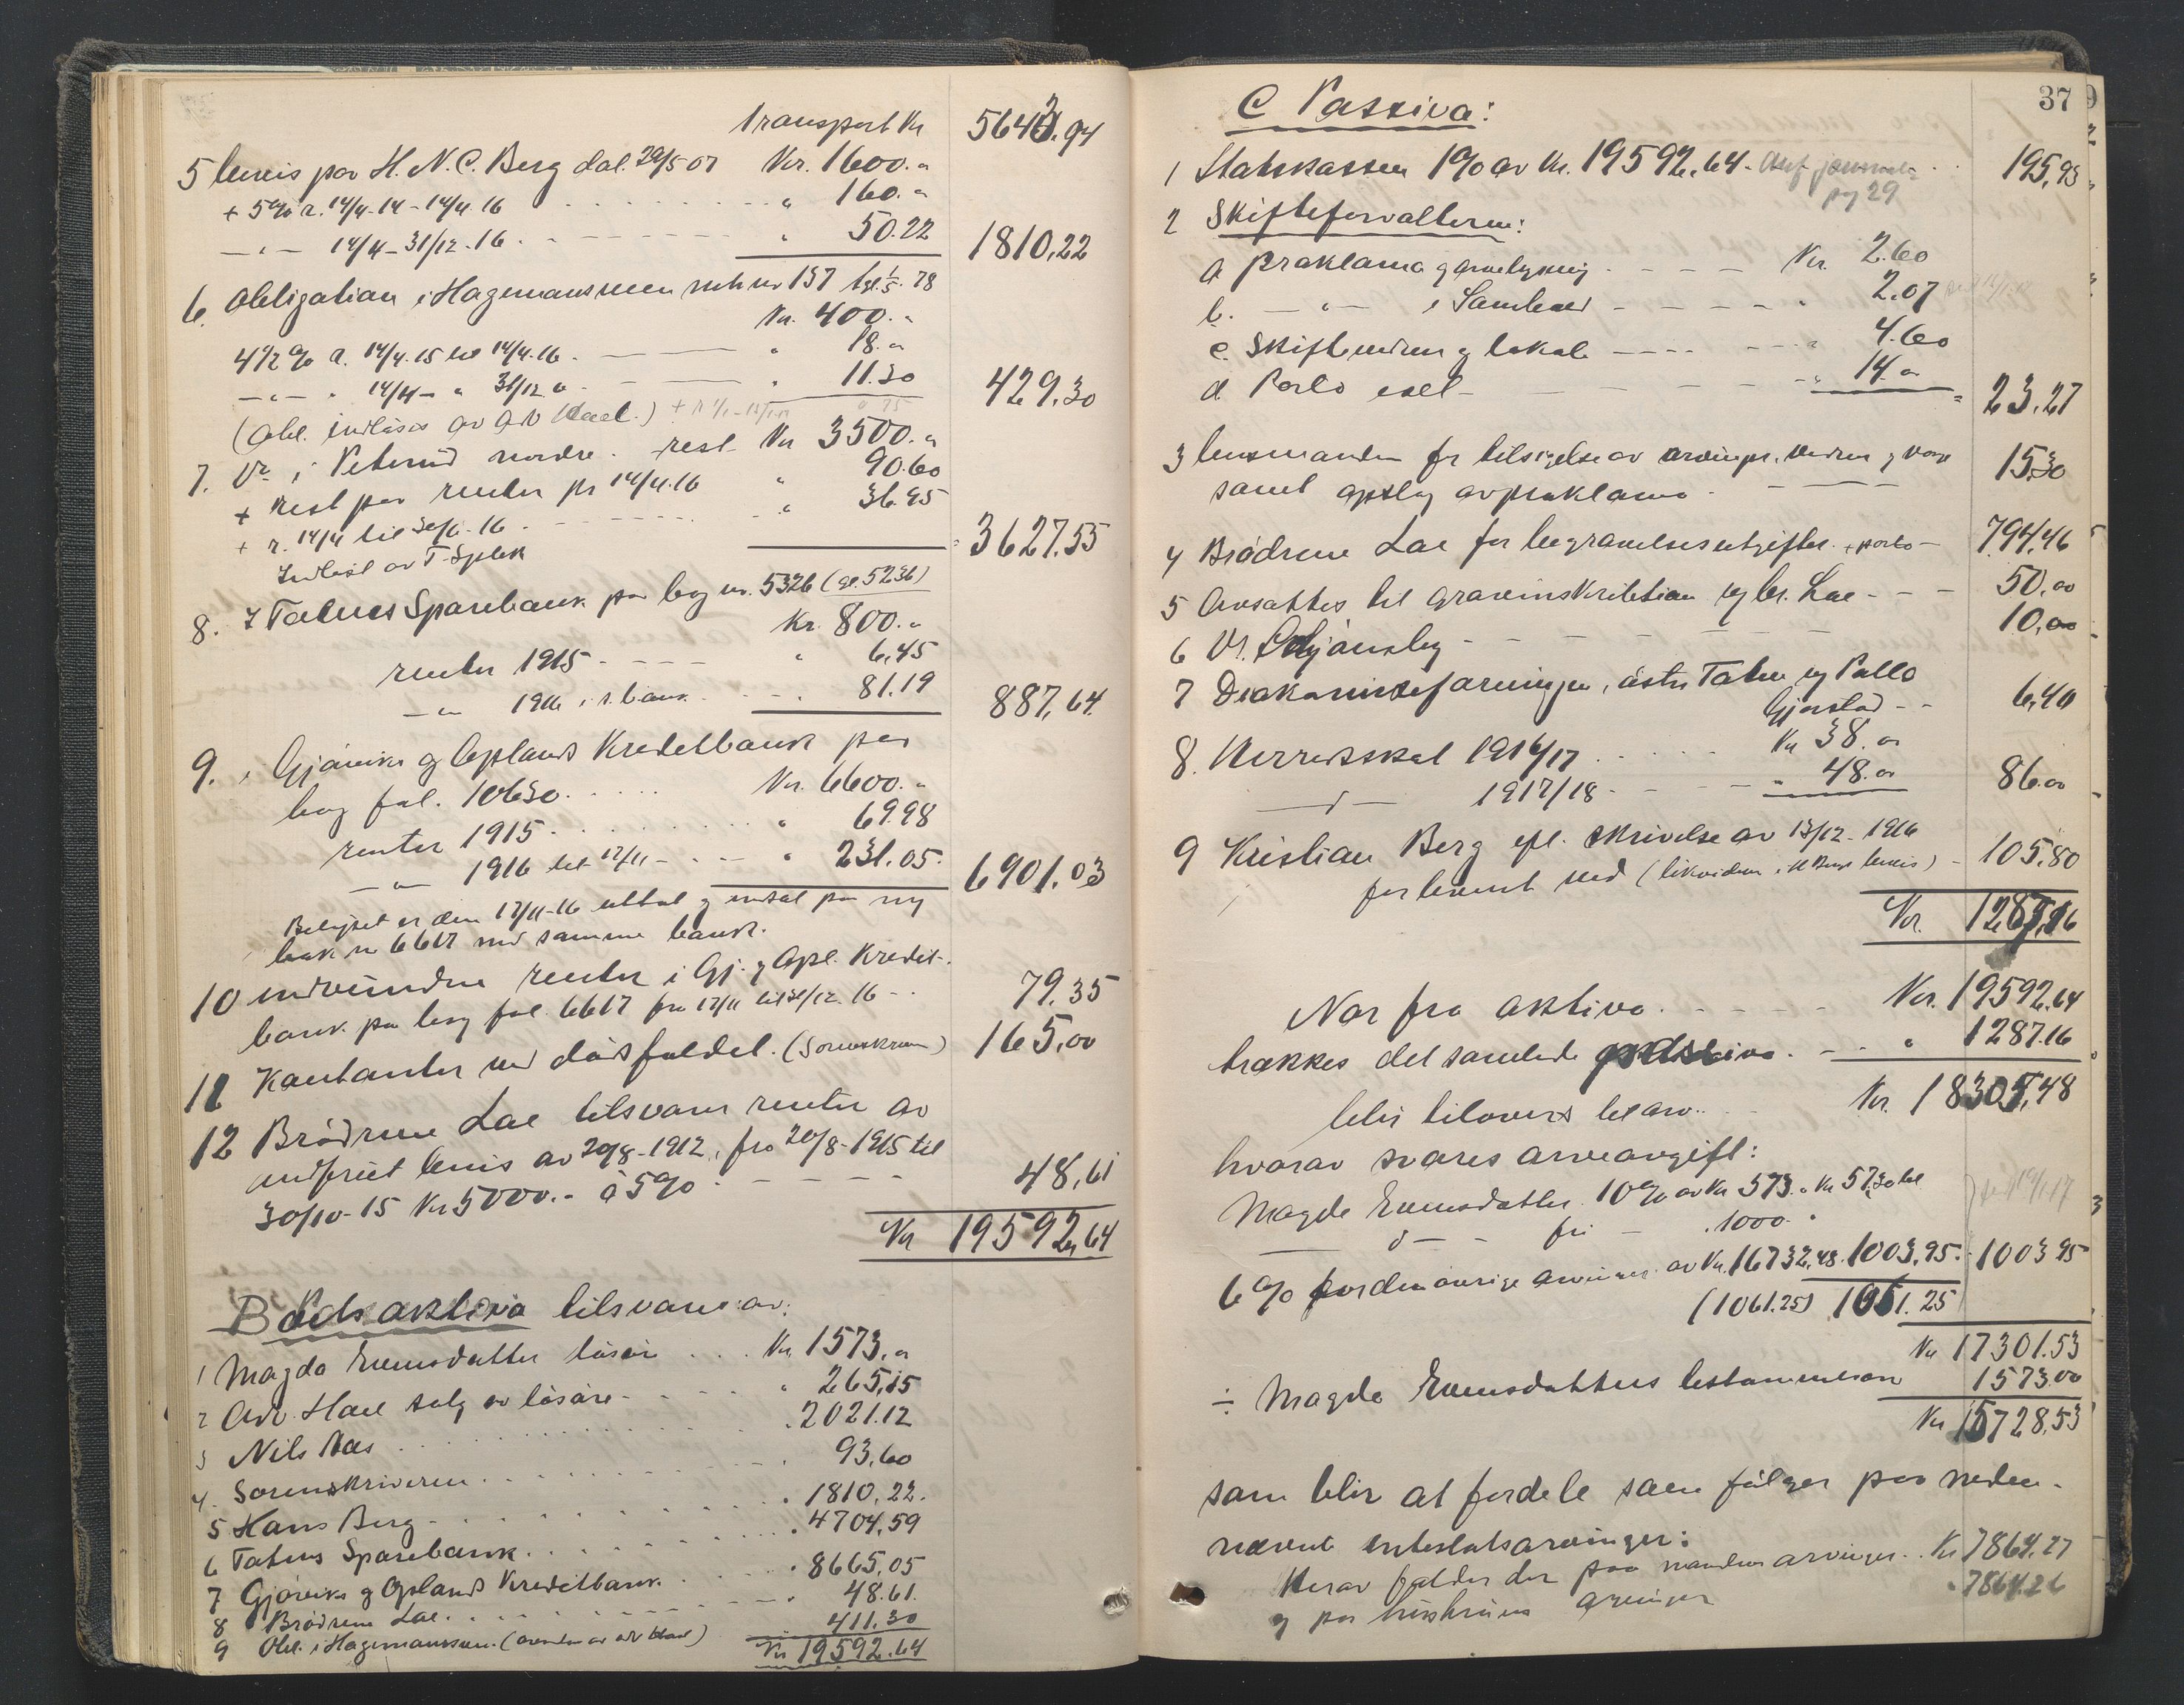 transport Kr 5643.94
5 bevis paa H. N. C. Berg dat. 29/5 07 Kr. 1600."
+ 5% r. 14/4-14 - 14/4.16 " 160."
—"— 14/4 - 31/12.16. " 50.22 1810,22
6. Obligation i Hagemansmen nr 137 tgl. 1/5. 78
Kr. 400."
4 1/2 % r. 14/4.15 til 14/4.16. " 18."
—"— " 14/4 — " 31/12 " " 11.30 429.30
(Obl. indløses av adv Hael.)
7. Do i Peterud nordre. rest Kr 3500."
+ Rest paa renter pr 14/4.16 " 90.60
+ r. 14/4 til 30/6.16. " 36.95 3627.55
Indløst av T. Spbk
8. I Totens Sparebank paa bog nr. 5326 (gl. 5236)
Kr. 800."
renter 1915 " 6,45
—"— 1916 i s. bank " 81.19 887,64
9. i Gjøviks og Oplands Kreditbank paa
bog fol. 10630. Kr. 6600."
renter 1915. " 69.98
—"— 1916 til 17/11 " 231.05. 6901.03
Beløpet er den 17/11-16 uttat og indsat paa ny
bok nr 6617 med samme bank.
10 indvundne renter i Gj. og Opl. Kredit-
bank paa bog fol. 6617 fra 17/11 til 31/12 16 79.35
11 Kontanter ved dødsfaldet. (Sorenskrum) 165,00
12 Brødrene Lae tilsvarer renter av
indfriet bevis av 20/8-1912, fra 20/8-1915 til
30/10-15 Kr 5000.- à 5% 48,61
Kr 19592,64
B Boets aktiva tilsvares av:
1 Magda Evensdatter løsøre Kr. 1573."
2 Adv. Hael salg av løsøre " 265,15
3 Nils Aas . 2021.12
4. Sorenskriveren . 93,60
5 Hans Berg . 1810,22.
6 Totens Sparebank . 4704,59
7 Gjøviks og Oplands Kreditbank . 8665,05
8 Brødrene Lae . 48.61.
9 Obl. i Hagemansmen. ( adv Hael) 411.30
Kr 19592.64
37
C Passiva:
1 Statskassen 1% av Kr. 19592.64 - journal 195,93
pag 29
2 Skifteforvalteren:
a Proklama og Kr. 2.60
b. —"— i Sambaand " 2.07
c. Skiftevidner og lokale " 4.60
d Porto " 14." 23.27
3 lensmanden for tilsigelse av arvinger, vidner og
samt opslag av proklama 15.30
4 Brødrene Lae for begravelsesutgifter + porto 794,46
5 Avsættes til gravinskription ved br. Lae 50,00
6 Dr. 10,00
7 Diakonisseforeningen, østre Toten ved Pallo
Gjerstad 6,40
8. Herredsskat 1916/17 Kr 38."
—"— 1917/18 " 48." 86.00
9 Kristian Berg efl. skrivelse av 13/12-1916
for levert ved (likvideres i H Bergs bevis) 105,80
Kr. 1287,16
Naar fra aktiva Kr. 19592.64
trækkes det samlede passiva " 1287.16
blir tilovers til arv Kr. 18305,48
hvorav svares arveavgift:
Magda Evensdatter 10% av Kr 573." Kr 57.30
—"— fri — . 1000."
6% for de øvrige arvinger av Kr. 16732.48. 1003.95. 1003 95
(1061.25) 1061.25
Kr 17301.53
÷ Magda Evensdatters testamentarv 1573.00
Kr 15728,53
som blir at fordele som følger paa neden-
nævnte intestatsarvinger:
Herav falder der paa mandens arvinger Kr 7864.27
og paa hustruens arvinger . 7864.26